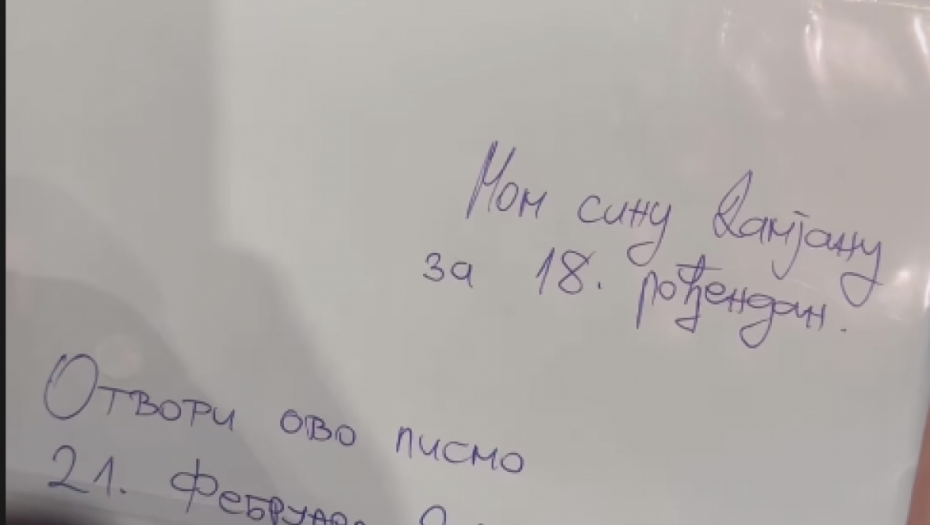 Мом сину Дамјану
за 18. рођендан.
Отвори ово писмо
21. фебруара